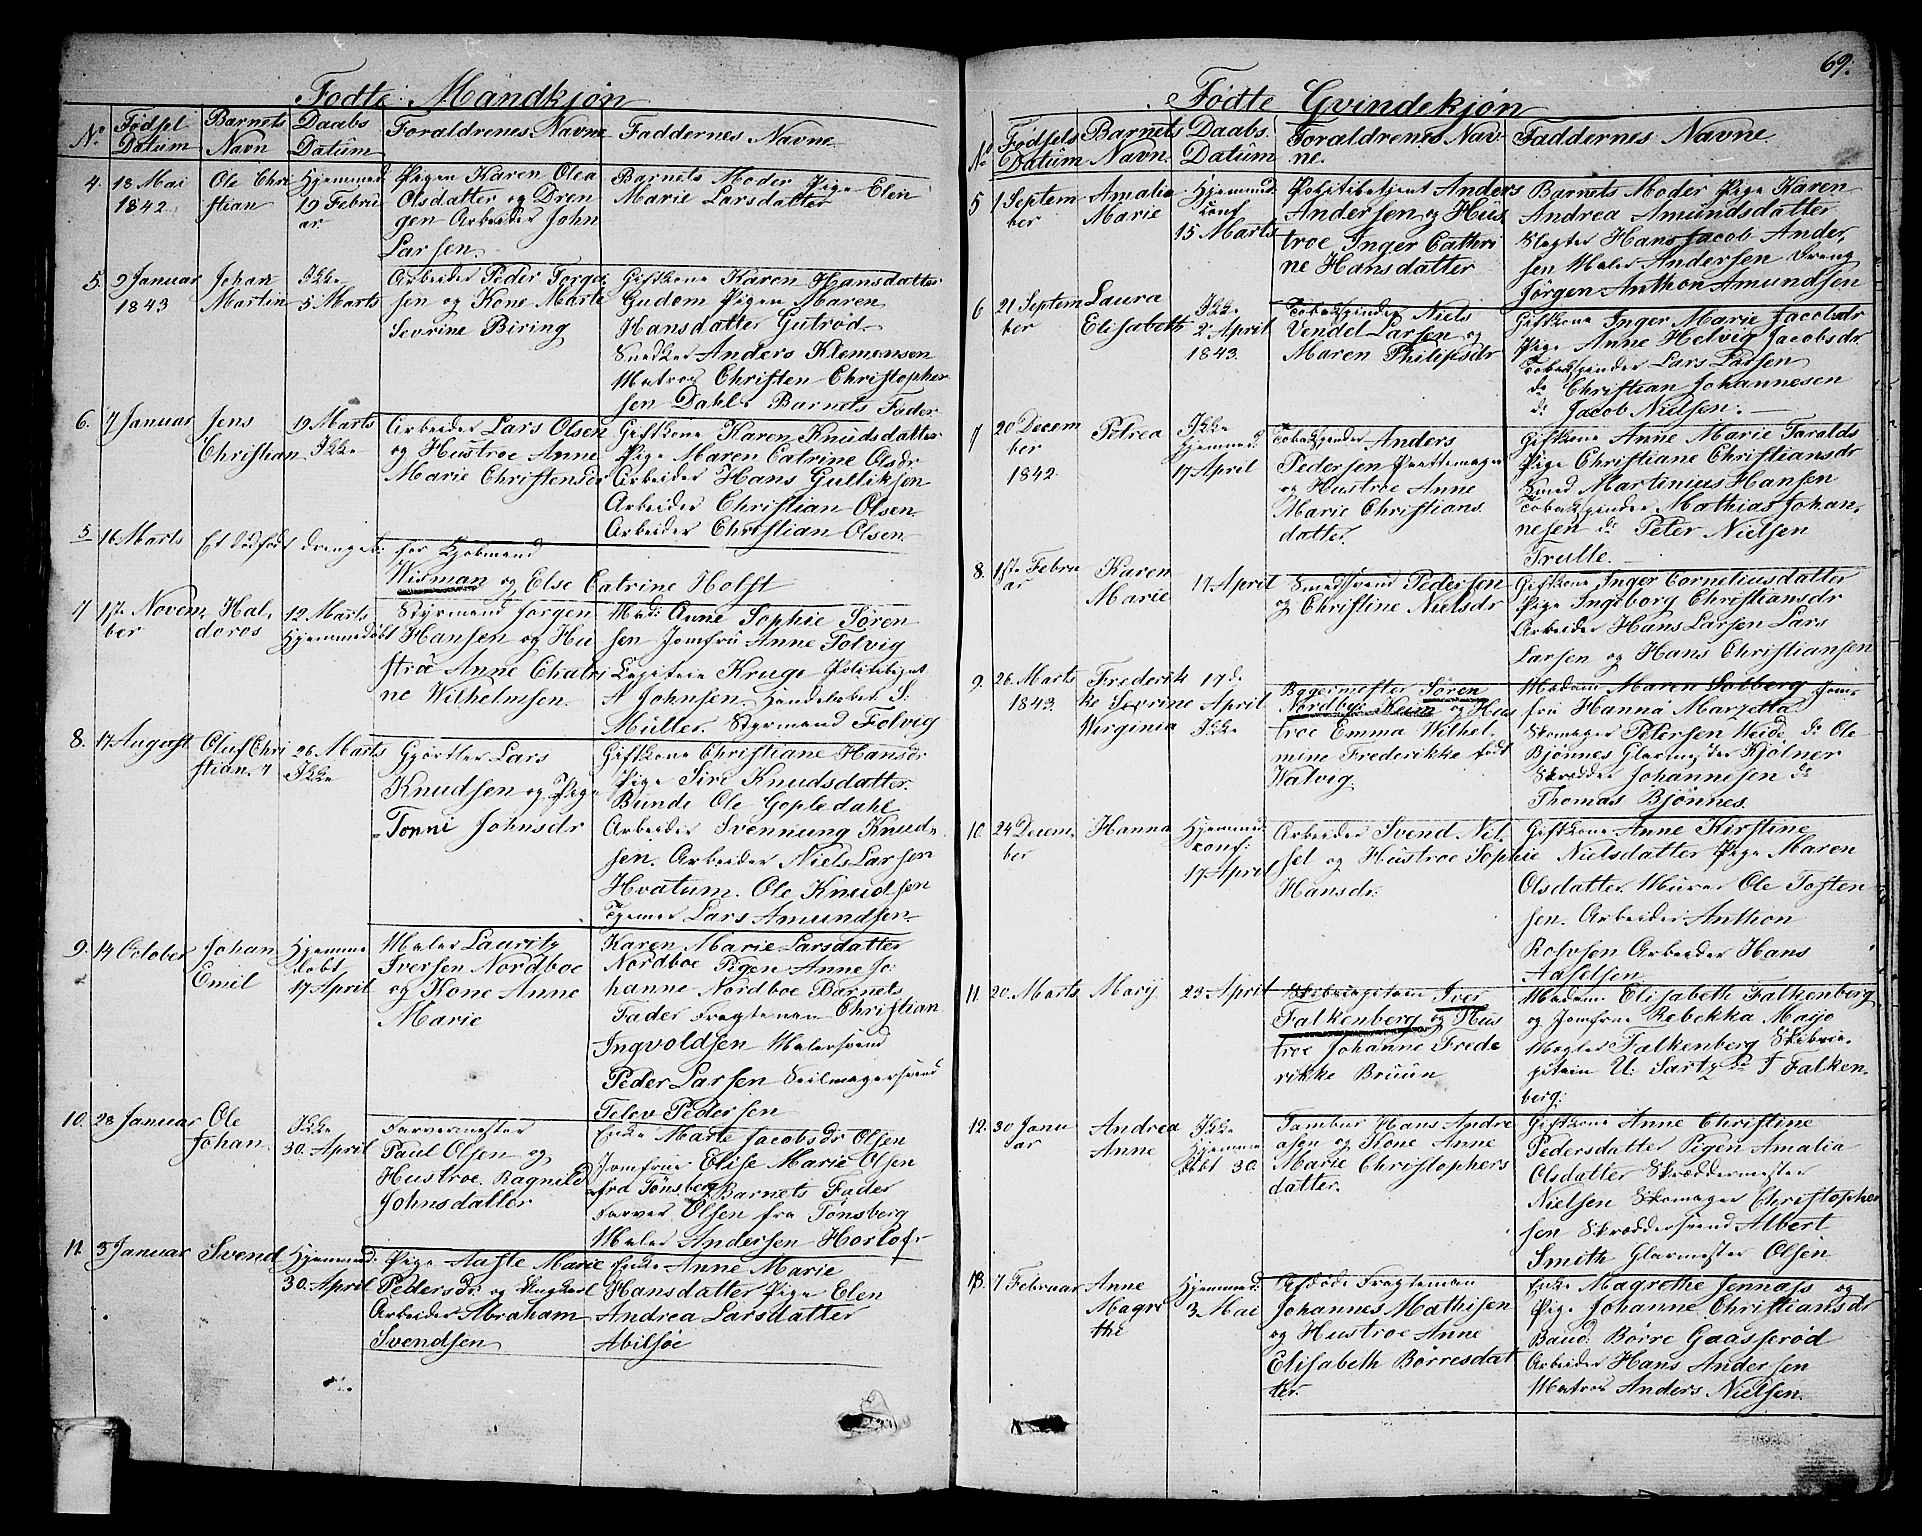 69.
Fødte Mandkjøn
No
Fødsel Datum
Barnets Navn
Daabs Datum
Foraldrenes Navne
Faddernes Navne
4.
18 Mai
1842.
Ole Chri
stian
Hjemmed
19 Febru
ar.
Pigen Karen Olea
Olsdatter og Dren
gen Arbeider John
Larsen.
Barnets Moder Pige Elen
Marie Larsdatter
5.
9 Januar
1843
Johan
Martin
Ikke
5 Marts
Arbeider Peder Torge
sen og Kone Marte
Sevrine Biring
Giftkone Karen Hansdatter
Gudom Pigen Maren
Hansdatter Gutrød
Snedker Anders Klemensen
Matros Christen Christopher
sen Dahl. Barnets Fader
6.
7 Januar
Jens
Christian
19 Marts
Ikke
Arbeider Lars Olsen
og Hustroe Anne
Marie Christensdr
Giftkone Karen Knudsdatter
Pige Maren Catrine Olsdr
Arbeider Hans Gulliksen
Arbeider Christian Olsen
Arbeider Christian Olsen
5
16 Marts
Et dødfødt drengeb:
for Kjøbmand
Wisman og Else Catrine Holst
7
17. Novem
ber
Hal
doros
12 Marts
Hjemmedøbt
Styrmand Jørgen
Hansen og Hu
stru Anne Chatri
ne Wilhelmsen.
Mad: Anne Sophie Søren
sen Jomfru Anne Tolvig
Kruge Politibetjent
A Johnsen Handelsbet: S:
Müller. Styrmand Tolvig
8.
17 August
Oluf Chri
stian.
26. Marts
Ikke
Gjørtler Lars
Knudsen og Pige
Tonni Johnsdr
Giftkone Christiane Hansdr
Pige Siri Knudsdatter
Bunde Ole Gopledahl
Arbeider Svennung Knud
sen. Arbeider Niels Larsen
Hvatum. Ole Knudsen
Lars Amundsen
9.
14 October
Johan
Emil
Hjemme
døbt
17 April
Maler Lauritz
Iversen Nordboe
og Kone Anne
Marie
Karen Marie Larsdatter
Nordboe Pigen Anne Jo
hanne Nordboe Barnets
Fader Fragteman Christian
Ingvoldsen Malersvend
Peder Larsen Seilmagersvend
Telev Pedersen
10.
28 Januar
Ole
Johan
Ikke
30. April
Farvermester
Paul Olsen og
Hustroe. Ragnild
Johnsdatter
Enke Marte Jacobsdr Olsen
Jomfrue Elise Marie Olsen
fra Tønsberg Barnets Fader
Farver Olsen fra Tønsberg
Maler Andersen Horlof
11.
3 Januar
Svend
Hjemmed:
30. April
Pige Aaste Marie
Pedersdr og Ungkarl
Arbeider Abraham
Svendsen
Enke Anne Marie
Hansdatter Pige Elen
Andrea Larsdatter
Abilsøe
Fødte Qvindekjøn
No
Fødsels Datum
Barnets Navn.
Daabs. Datum
Foraldrenes Nav
ne.
Faddernes Navne
5
1 Septem
ber
Amalia
Marie
Hjemmed:
Conf
15 Marts
Politibetjent Anders
Andersen og Hus
troe Inger Cathri
ne Hansdatter
Barnets Moder Pige Karen
Andrea Amundsdatter
Slagter Hans Jacob Ander
sen Maler Andersen Dreng
Jørgen Anthon Amundsen
6
21 Septem
ber
Laura
Elisabeth
Ikke
2 April
1843.
Tobakspinder Niels
Vendel Larsen og
Maren Philipsdr
Giftkone Inger Marie Jacobsdr
Pige Anne Helvig Jacobsdr
Tobakspinder Lars Larsen
do Christian Johannesen
do Jacob Nielsen.
7
20 Decem
ber
1842
Petrea
Ikke
Hjemmed:
17 April
Tobakspinder Anders
Pedersen
og Hustroe Anne
Marie Christians
datter.
Giftkone Anne Marie Taralds
Pige Christiane Christiansdr
Smed Martinius Hansen
Tobakspinder Mathias Johan
nesen do Peter Nielsen
Trulle.
8.
1ste Febru
ar
Karen
Marie
17 April
Pedersen
og Christine Nielsdr
Giftkone Inger Corneliusdatter
Pige Ingeborg Christiansdr
Arbeider Hans Larsen Lars
Larsen og Hans Christiansen
9.
26. Marts
1843.
Frederik
ke Sevrine
Virginia
17 de
April
Ikke
Bagermester Søren
Nordboe Keim og Hus
troe Emma Wilhel
mine Frederikke født
Walvig.
Madam Maren Solberg Jom
fru Hanna Marzetta
Skomager Petersen Weide do Ole
Bjønnes Glarmester Kjølner
Skredder Johannesen do
Thomas Bjønnes.
10.
24 Decem
ber
Hanna
Hjemmed:
Conf:
17 April
Arbeider Svend Nil
sel og Hustroe Sophie
Hansdr:
Giftkone Anne Kirstine
Nielsdatter Pige Maren
Olsdatter. Murer Ole Tosten
sen. Arbeider Anthon
Rolvsen Arbeider Hans
Aaselsen
11.
20. Marts
Marij
23 April
Skibscapitain Iver
Falkenberg og Hus
troe Johanne Frede
rikke Bruun
Madam: Elisabeth Falkenberg
og Jomfrue Rebekka Maijo
Mægler Falkenberg Skibsca
pitain U. Sartz do J Falken
berg:
12.
30 Janu
ar
Andrea
Anne
Ikke
Hjemme
døbt 30.
Tambur Hans Andre
asen og Kone Anne
Marie Christophers
datter.
Giftkone Anne Christine
Pedersdatter Pigen Amalia
Olsdatter Skræddermester
Nielsen Skomager Christopher
sen Skræddersvend Albert
Smith Glarmester Olsen
13.
7 Februar
Anne
Magre
the
Hjemmed:
3 Mai
Afdøde Fragteman
Johannes Mathisen
og Hustroe Anne
Elisabeth Børresdat
ter.
Enke Magrethe Jennass og
Pige Johanne Christiansdr
Baud: Børre Gaasserød
Arbeider Hans Andersen
Matros Anders Nielsen.